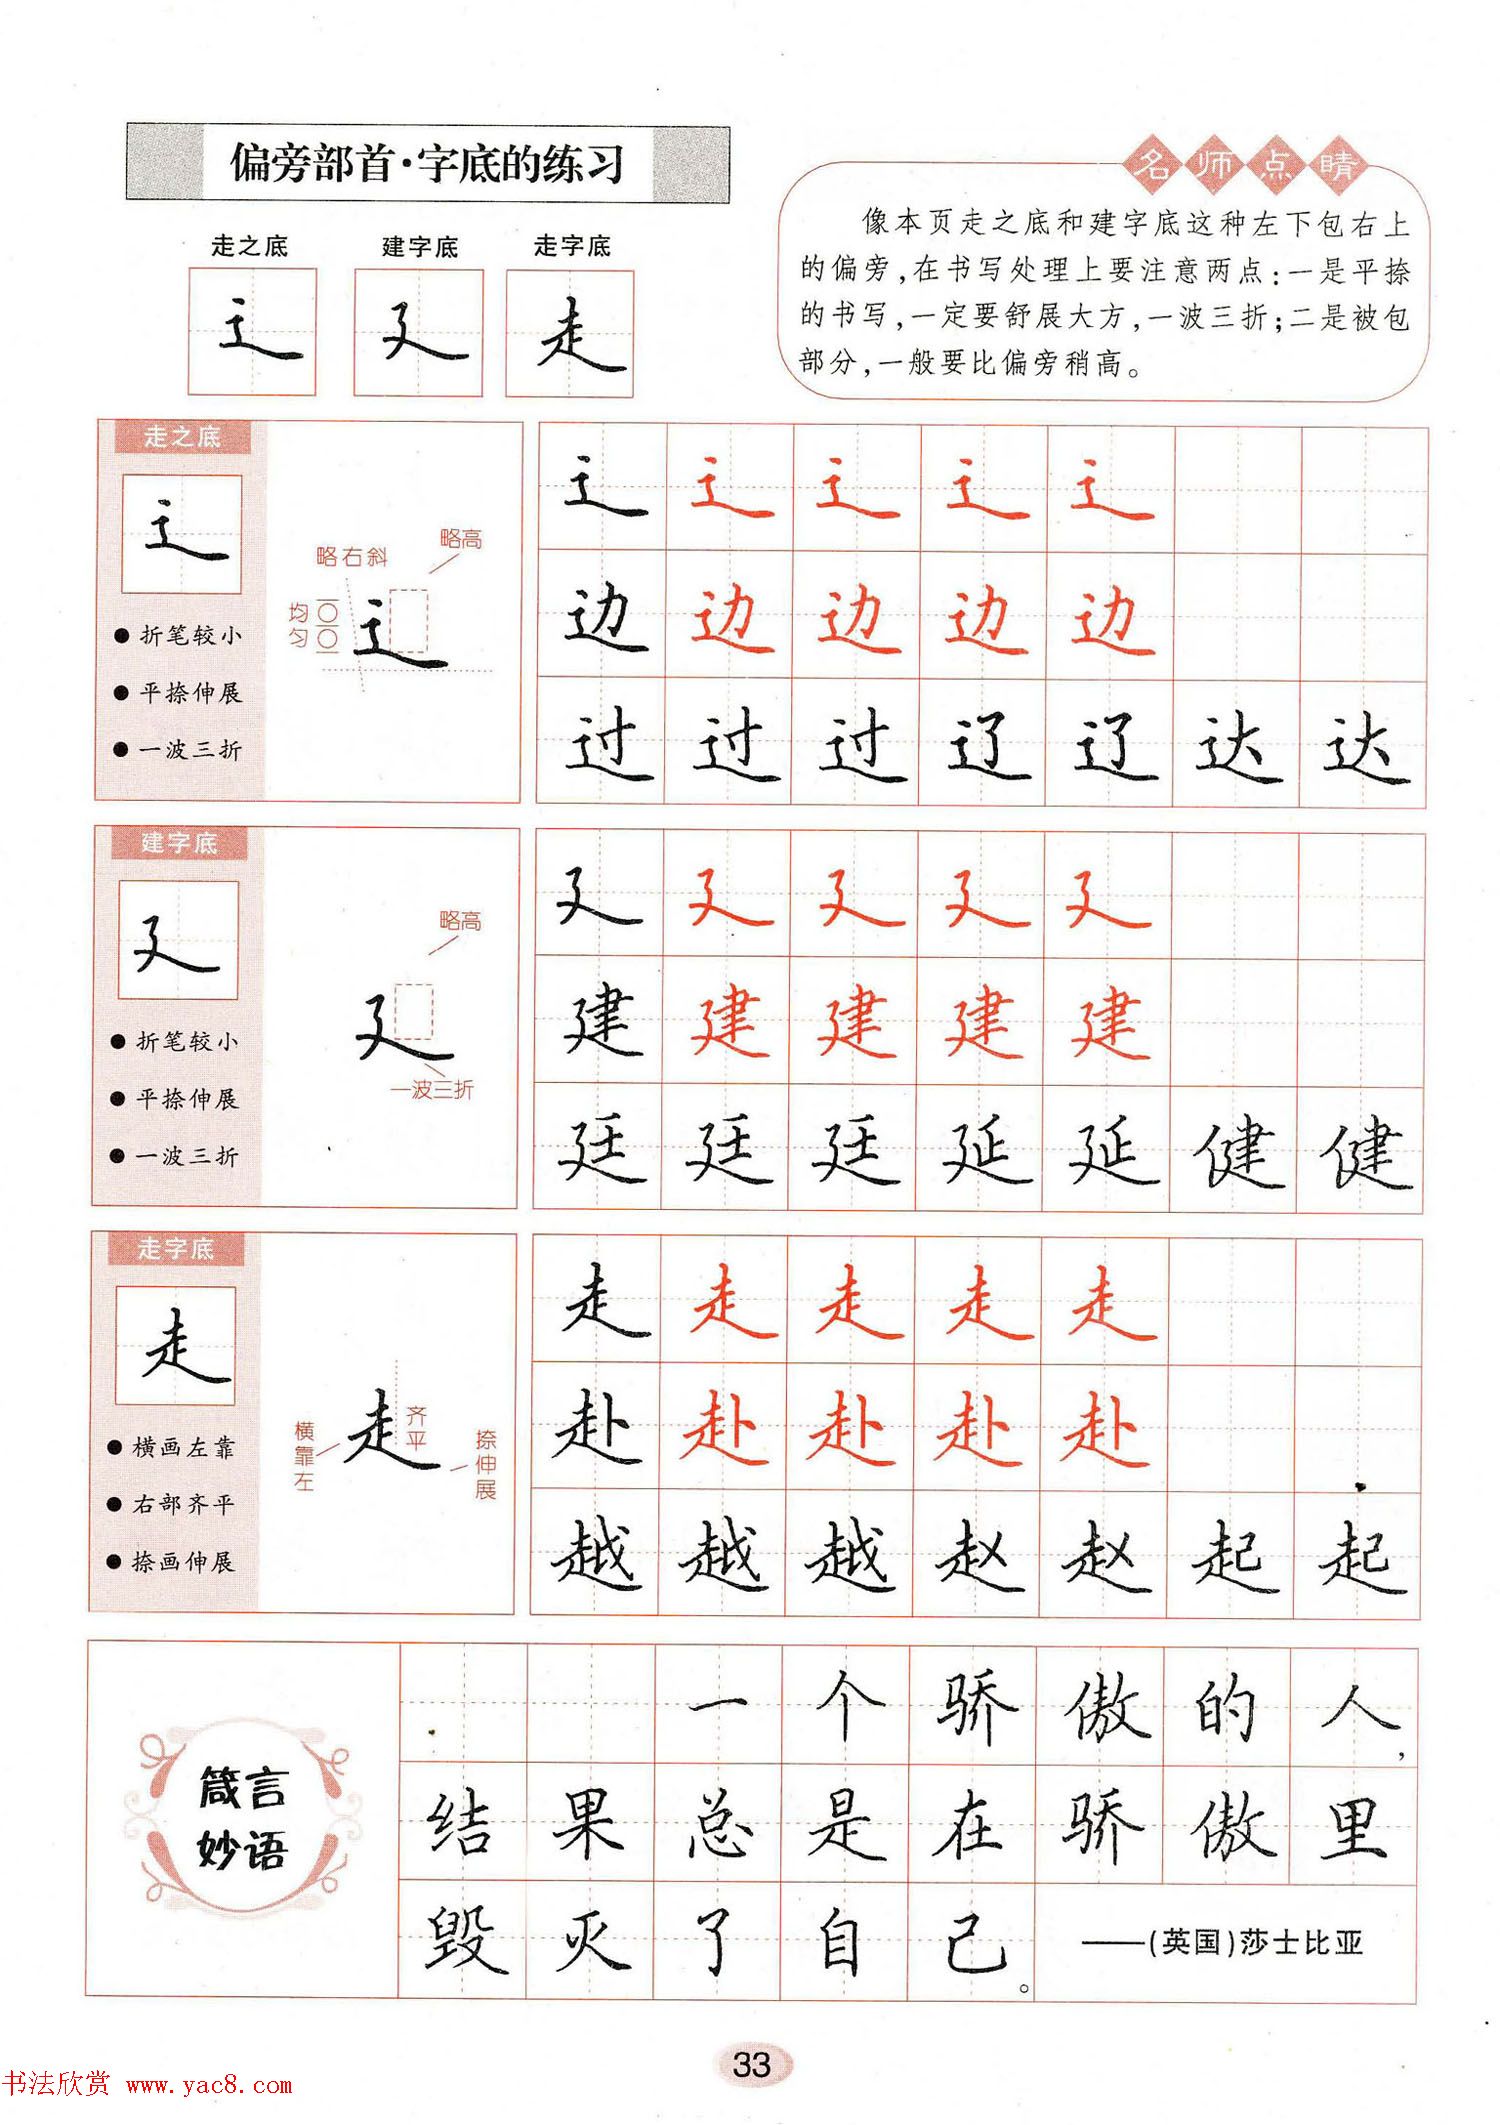 偏旁部首·字底的练习
名师点睛
像本页走之底和建字底这种左下包右上
的偏旁,在书写处理上要注意两点:一是平捺
的书写,一定要舒展大方,一波三折;二是被包
部分,一般要比偏旁稍高。
走之底 建字底 走字底
辶 廴 走
走之底
辶
折笔较小
平捺伸展
一波三折
略右斜
略高
均匀
辶
辶 辶 辶 辶 辶
边 边 边 边 边
过 过 过 辽 辽 达 达
建字底
廴
折笔较小
平捺伸展
一波三折
略高
廴
一波三折
廴 廴 廴 廴 廴
建 建 建 建 建
廷 廷 廷 延 延 健 健
走字底
走
横画左靠
右部齐平
捺画伸展
横靠左
走
齐平
捺伸展
走 走 走 走 走
赴 赴 赴 赴 赴
越 越 越 赵 赵 起 起
箴言
妙语
一个骄傲的人,
结果总是在骄傲里
毁灭了自己。
——(英国)莎士比亚
33
书法欣赏 www.yac8.com